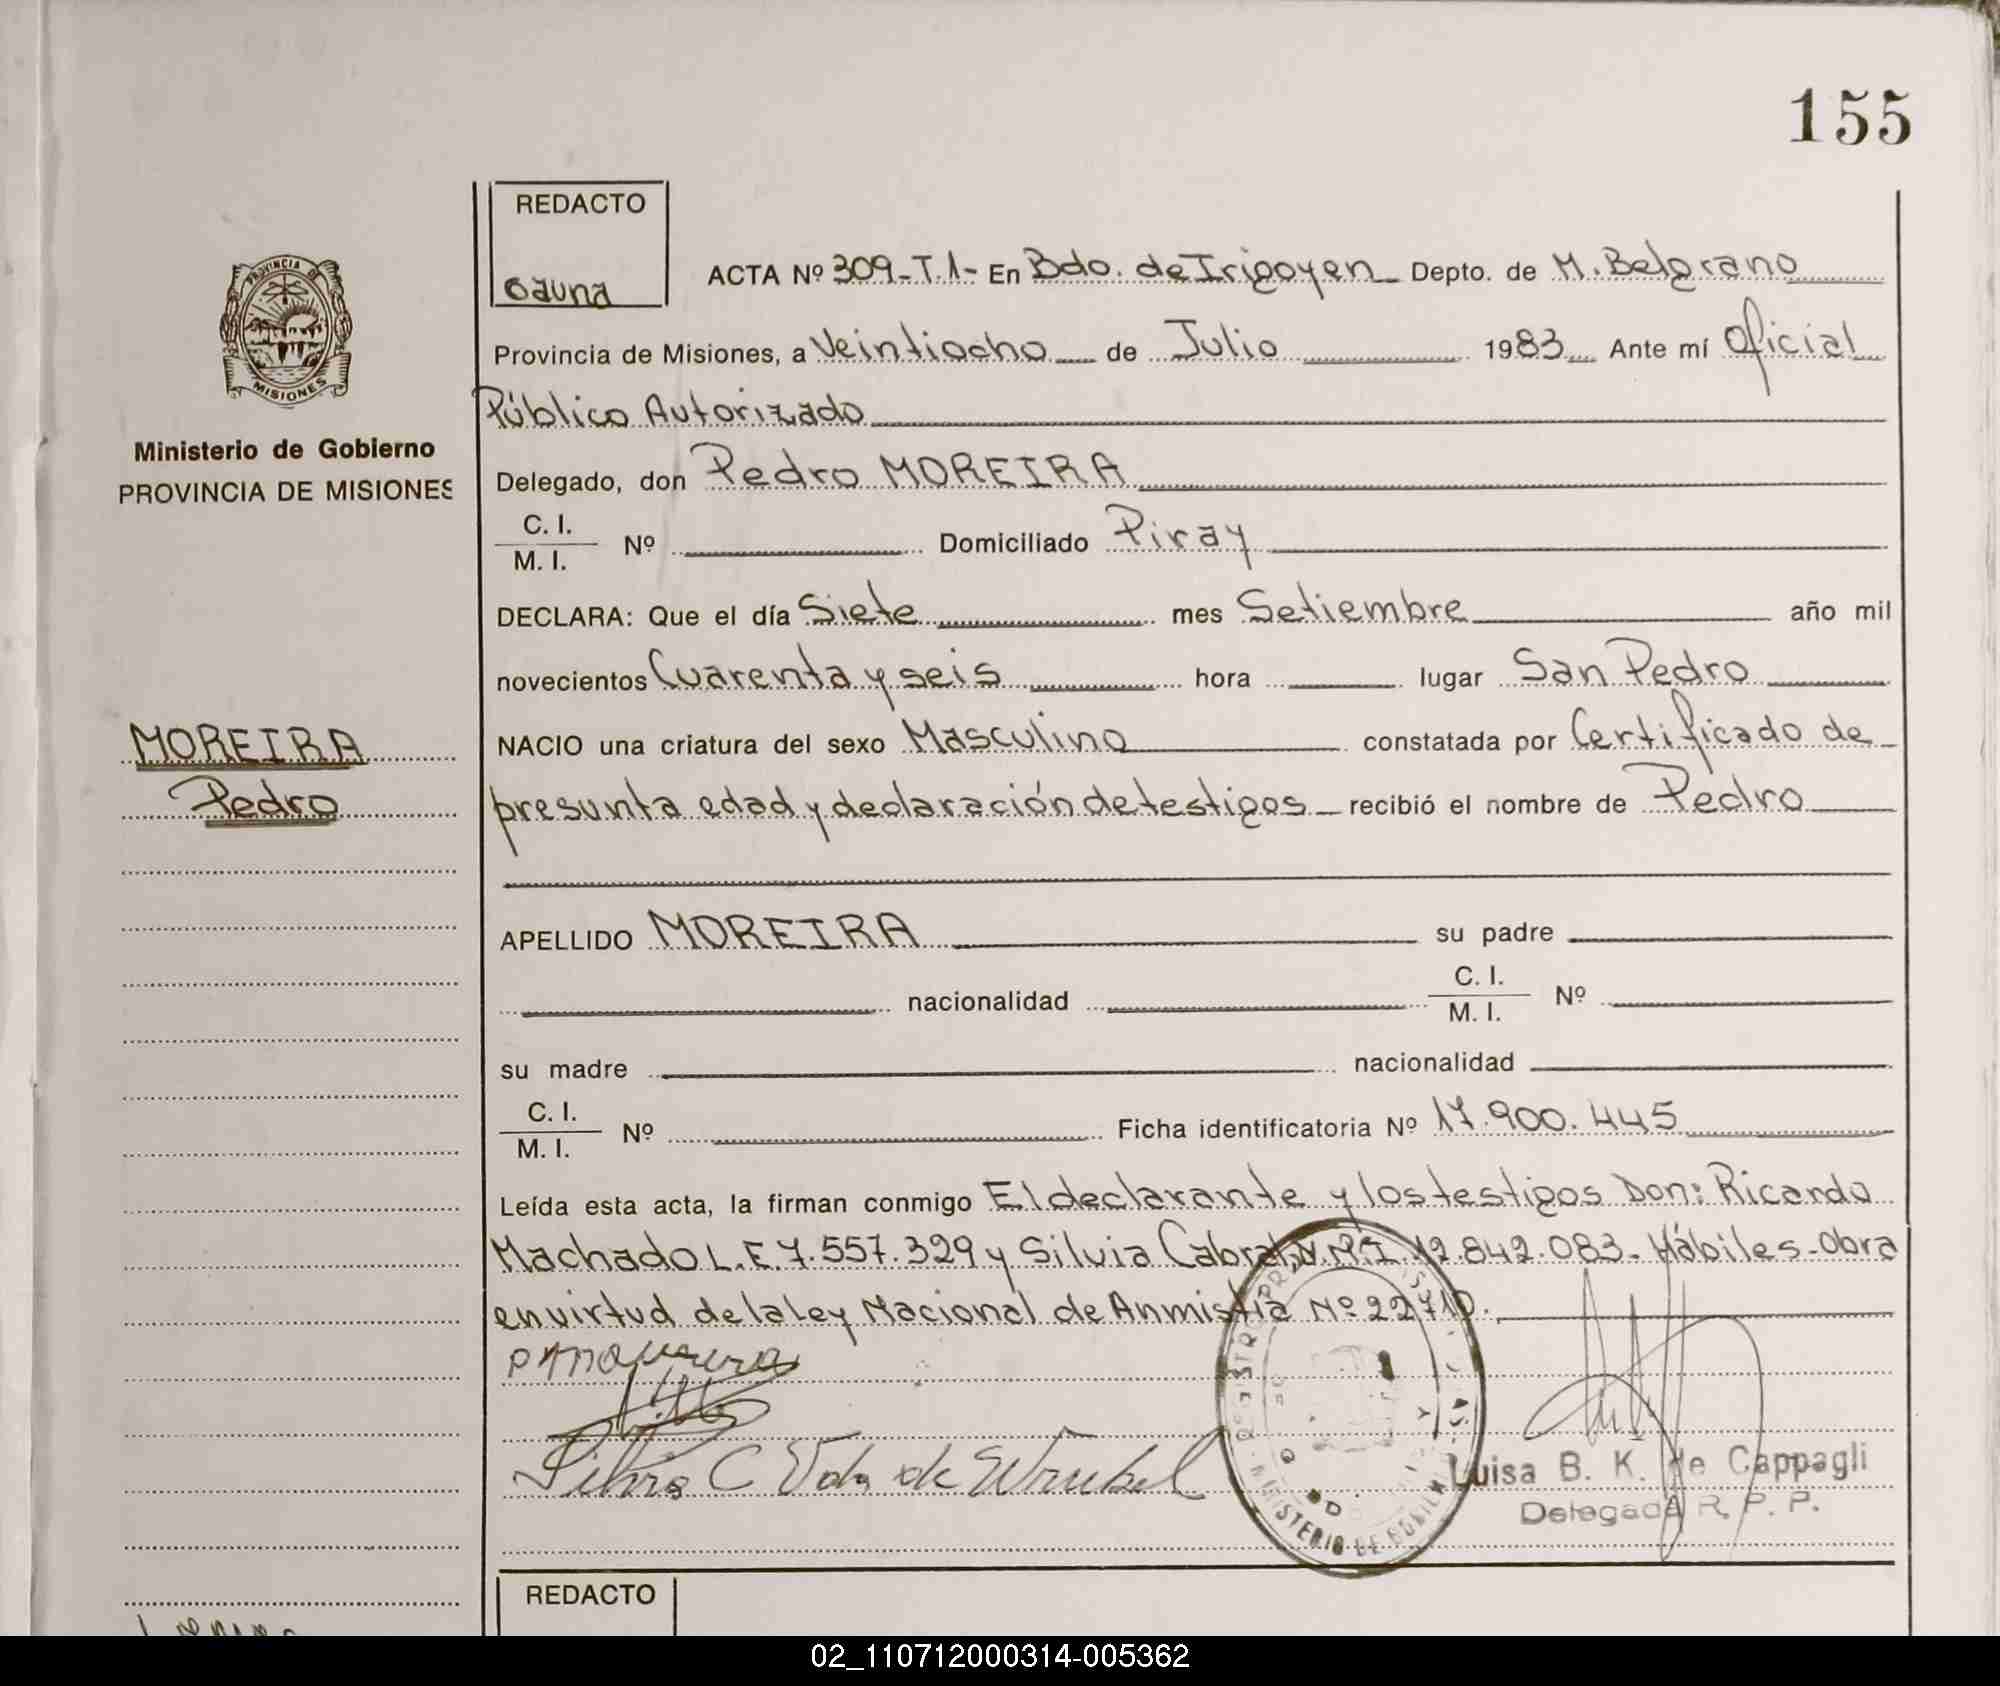 155
REDACTO
Gauna
PROVINCIA DE
MISIONES
Ministerio de Gobierno
PROVINCIA DE MISIONES
ACTA Nº 309-T.1- En Bdo. de Irigoyen Depto. de M. Belgrano
Provincia de Misiones, a Veintiocho de Julio 1983 Ante mí Oficial
Público Autorizado
Delegado, don Pedro MOREIRA
C. I.
M. I. Nº Domiciliado Piray
DECLARA: Que el día Siete mes Setiembre año mil
novecientos Cuarenta y seis hora lugar San Pedro
MOREIRA
Pedro
NACIO una criatura del sexo Masculino constatada por Certificado de
presunta edad y declaración de testigos recibió el nombre de Pedro
APELLIDO MOREIRA su padre
nacionalidad C. I.
M. I. Nº
su madre nacionalidad
C. I.
M. I. Nº Ficha identificatoria Nº 17.900.445
Leída esta acta, la firman conmigo El declarante y los testigos Don: Ricardo
Machado L.E. 7.557.329 y Silvia Cabral, 12.842.083- Hábiles-Obra
en virtud de la ley Nacional de Anmistia Nº 22710.
Silvia C Vda de Wrubel
MINISTERIO DE
Luisa B. K. de Cappagli
Delegada R. P. P.
REDACTO
02_110712000314-005362